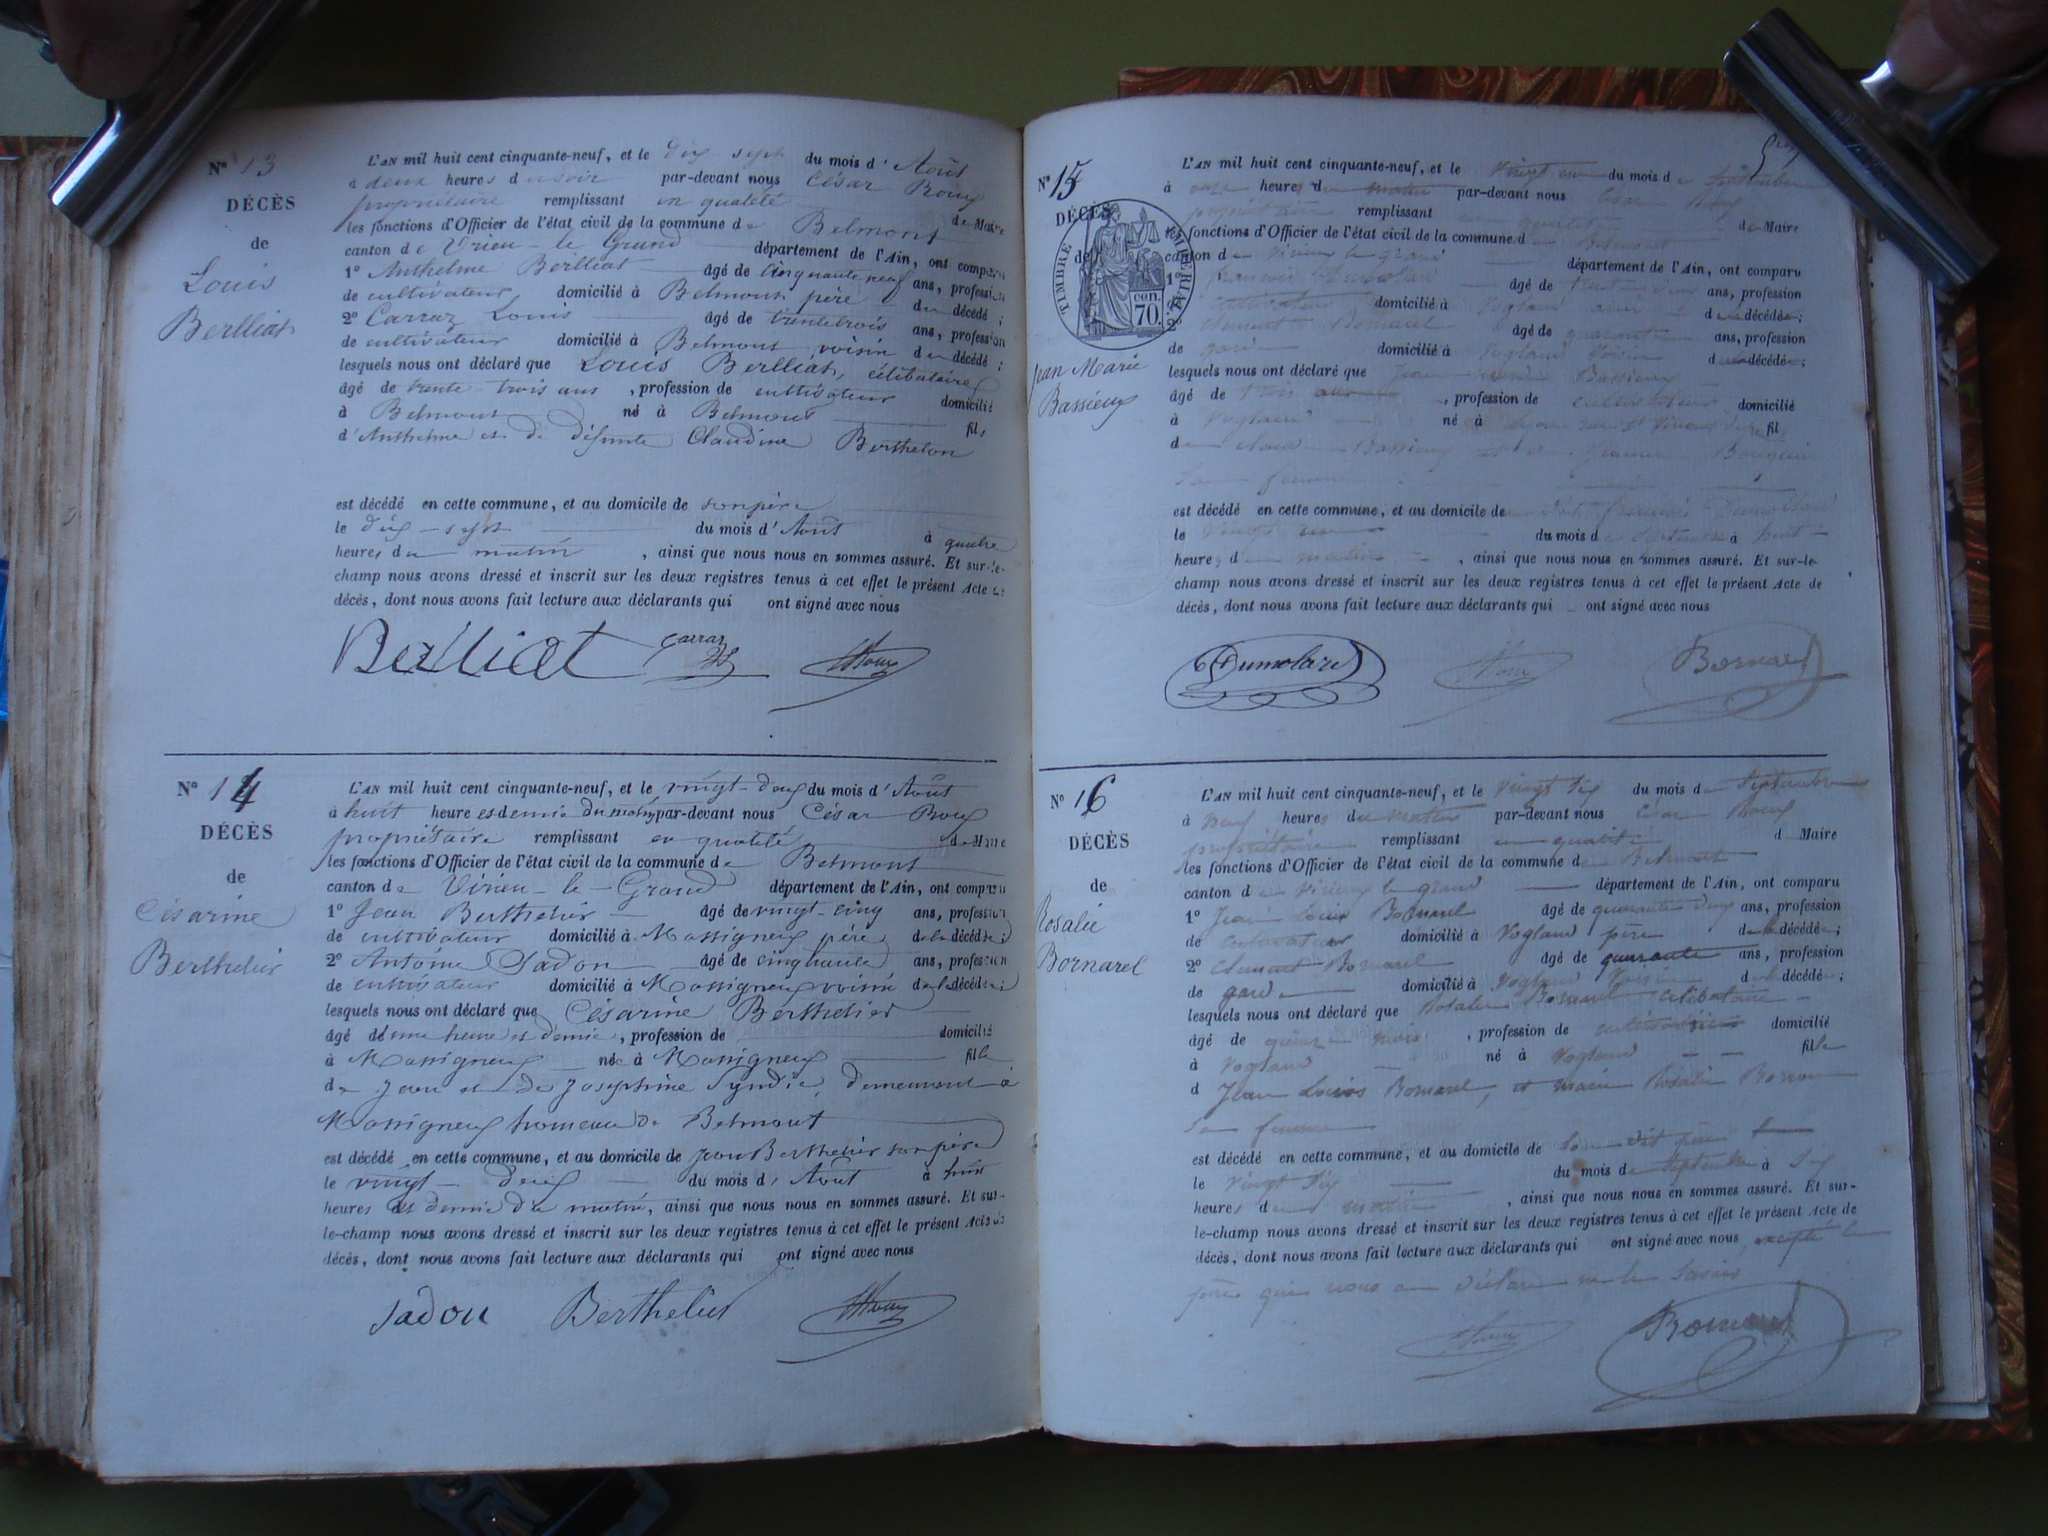 N° 13
DÉCÈS
de
Louis
Berlliat
L'AN mil huit cent cinquante-neuf, et le dix sept du mois d'Août
à deux heures du soir par-devant nous César Roux
propriétaire remplissant en qualité de Maire
les fonctions d'Officier de l'état civil de la commune de Belmont
canton de Virieu-le Grand département de l'Ain, ont comparu
1° Anthelme Berlliat âgé de cinquante neuf ans, profession
de cultivateur domicilié à Belmont père du décédé ;
2° Carraz Louis âgé de trente trois ans, profession
de cultivateur domicilié à Belmont voisin du décédé ;
lesquels nous ont déclaré que Louis Berlliat, célibataire
âgé de trente trois ans , profession de cultivateur domicilié
à Belmont né à Belmont fils
d'Anthelme et de défunte Claudine Berthelon
est décédé en cette commune, et au domicile de son père
le dix-sept du mois d'Août à quatre
heures du matin , ainsi que nous nous en sommes assuré. Et sur-le-
champ nous avons dressé et inscrit sur les deux registres tenus à cet effet le présent Acte de
décès, dont nous avons fait lecture aux déclarants qui ont signé avec nous
Berlliat Carraz Roux
N° 14
DÉCÈS
de
Césarine
Berthelier
L'AN mil huit cent cinquante-neuf, et le vingt-deux du mois d'Août
à huit heures et demie du matin par-devant nous César Roux
propriétaire remplissant en qualité de Maire
les fonctions d'Officier de l'état civil de la commune de Belmont
canton de Virieu-le-Grand département de l'Ain, ont comparu
1° Jean Berthelier âgé de vingt-cinq ans, profession
de cultivateur domicilié à Massigneux père de la décédée ;
2° Antoine Jadon âgé de cinquante ans, profession
de cultivateur domicilié à Massigneux voisin de la décédée ;
lesquels nous ont déclaré que Césarine Berthelier
âgé d'une heure et demie , profession de domicilié
à Massigneux née à Massigneux fille
de Jean et de Josephine Syndic, demeurant à
Massigneux hameau de Belmont
est décédé en cette commune, et au domicile de Jean Berthelier son père
le vingt-deux du mois d'Août à huit
heures et demie du matin, ainsi que nous nous en sommes assuré. Et sur-
le-champ nous avons dressé et inscrit sur les deux registres tenus à cet effet le présent Acte de
décès, dont nous avons fait lecture aux déclarants qui ont signé avec nous
Jadon Berthelier Roux
N° 15
DÉCÈS
de
TIMBRE IMPÉRIAL
70 cen.
Jean Marie
Bassieux
L'AN mil huit cent cinquante-neuf, et le vingt un du mois de Septembre
à onze heures du matin par-devant nous César Roux
propriétaire remplissant en qualité de Maire
les fonctions d'Officier de l'état civil de la commune de Belmont
canton de Virieu le grand département de l'Ain, ont comparu
1° François Dumolard âgé de ans, profession
domicilié à Voglans du décédé ;
2° Clément Bornarel âgé de quarante ans, profession
de garde domicilié à Voglans voisin du décédé ;
lesquels nous ont déclaré que Jean Marie Bassieux
âgé de trois , profession de domicilié
à Voglans né à fils
de Bassieux et de
Sa femme
est décédé en cette commune, et au domicile de François Dumolard
le vingt un du mois de Septembre à huit
heures du matin , ainsi que nous nous en sommes assuré. Et sur-le-
champ nous avons dressé et inscrit sur les deux registres tenus à cet effet le présent Acte de
décès, dont nous avons fait lecture aux déclarants qui ont signé avec nous
Dumolard Roux Bornarel
N° 16
DÉCÈS
de
Rosalie
Bornarel
L'AN mil huit cent cinquante-neuf, et le vingt six du mois de Septembre
à neuf heures du matin par-devant nous César Roux
propriétaire remplissant en qualité d Maire
les fonctions d'Officier de l'état civil de la commune de Belmont
canton de Virieu le grand département de l'Ain, ont comparu
1° Jean Louis Bornarel âgé de quarante deux ans, profession
de cultivateur domicilié à Voglans père de la décédée ;
2° Clément Bornarel âgé de quarante ans, profession
de garde domicilié à Voglans voisin de la décédée ;
lesquels nous ont déclaré que Rosalie Bornarel célibataire
âgé de quinze mois , profession de cultivatrice domicilié
à Voglans né à Voglans fille
d Jean Louis Bornarel, et Marie Rosalie
Sa femme
est décédé en cette commune, et au domicile de son dit père
le vingt six du mois de Septembre à six
heures du matin , ainsi que nous nous en sommes assuré. Et sur-
le-champ nous avons dressé et inscrit sur les deux registres tenus à cet effet le présent Acte de
décès, dont nous avons fait lecture aux déclarants qui ont signé avec nous excepté le
père que nous a déclaré ne le savoir
Roux Bornarel